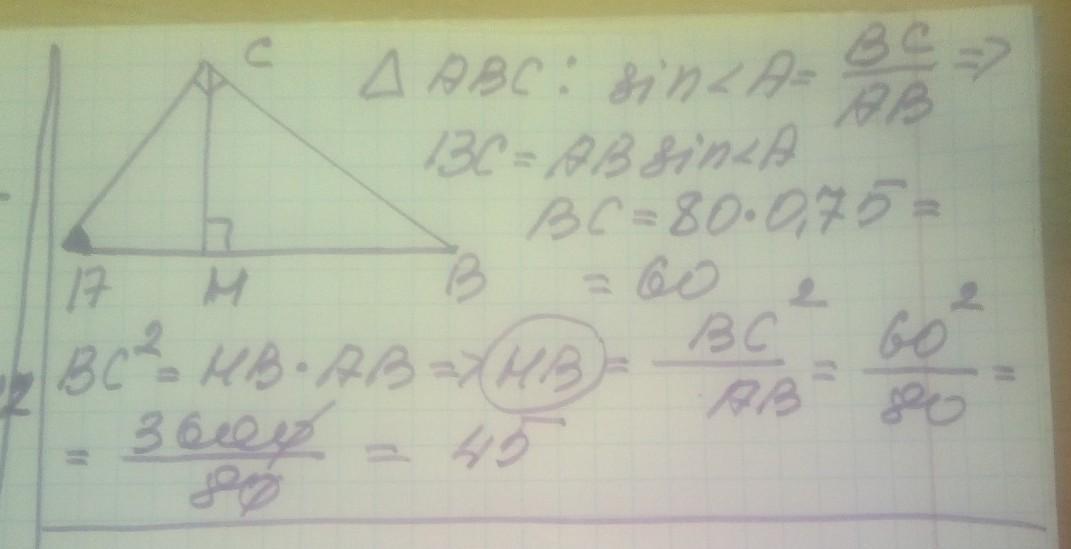 C
△ ABC: sin<A = BC/AB =>
BC = AB sin<A
BC = 80·0,75 =
= 60
A H B
BC² = HB·AB => HB = BC²/AB = 60²/80 =
= 3600/80 = 45